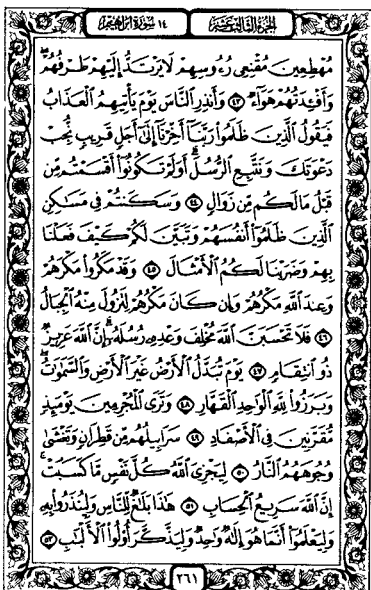 الجزء الثالث عشر
١٤ سورة ابراهيم
مُهْطِعِينَ مُقْنِعِى رُءُوسِهِمْ لَا يَرْتَدُّ إِلَيْهِمْ طَرْفُهُمْ
وَأَفْـِٔدَتُهُمْ هَوَآءٌ ٤٣ وَأَنذِرِ ٱلنَّاسَ يَوْمَ يَأْتِيهِمُ ٱلْعَذَابُ
فَيَقُولُ ٱلَّذِينَ ظَلَمُوا۟ رَبَّنَآ أَخِّرْنَآ إِلَىٰٓ أَجَلٍ قَرِيبٍ نُّجِبْ
دَعْوَتَكَ وَنَتَّبِعِ ٱلرُّسُلَ أَوَلَمْ تَكُونُوٓا۟ أَقْسَمْتُم مِّن
قَبْلُ مَالَكُم مِّن زَوَالٍ ٤٤ وَسَكَنتُمْ فِى مَسَٰكِنِ
ٱلَّذِينَ ظَلَمُوٓا۟ أَنفُسَهُمْ وَتَبَيَّنَ لَكُمْ كَيْفَ فَعَلْنَا
بِهِمْ وَضَرَبْنَا لَكُمُ ٱلْأَمْثَالَ ٤٥ وَقَدْ مَكَرُوا۟ مَكْرَهُمْ
وَعِندَ ٱللَّهِ مَكْرُهُمْ وَإِن كَانَ مَكْرُهُمْ لِتَزُولَ مِنْهُ ٱلْجِبَالُ
٤٦ فَلَا تَحْسَبَنَّ ٱللَّهَ مُخْلِفَ وَعْدِهِۦ رُسُلَهُۥٓ إِنَّ ٱللَّهَ عَزِيزٌ
ذُو ٱنتِقَامٍ ٤٧ يَوْمَ تُبَدَّلُ ٱلْأَرْضُ غَيْرَ ٱلْأَرْضِ وَٱلسَّمَٰوَٰتُ
وَبَرَزُوا۟ لِلَّهِ ٱلْوَٰحِدِ ٱلْقَهَّارِ ٤٨ وَتَرَى ٱلْمُجْرِمِينَ يَوْمَئِذٍ
مُّقَرَّنِينَ فِى ٱلْأَصْفَادِ ٤٩ سَرَابِيلُهُم مِّن قَطِرَانٍ وَتَغْشَىٰ
وُجُوهَهُمُ ٱلنَّارُ ٥٠ لِيَجْزِىَ ٱللَّهُ كُلَّ نَفْسٍ مَّا كَسَبَتْ
إِنَّ ٱللَّهَ سَرِيعُ ٱلْحِسَابِ ٥١ هَٰذَا بَلَٰغٌ لِّلنَّاسِ وَلِيُنذَرُوا۟ بِهِۦ
وَلِيَعْلَمُوٓا۟ أَنَّمَا هُوَ إِلَٰهٌ وَٰحِدٌ وَلِيَذَّكَّرَ أُو۟لُوا۟ ٱلْأَلْبَٰبِ ٥٢
٢٦١